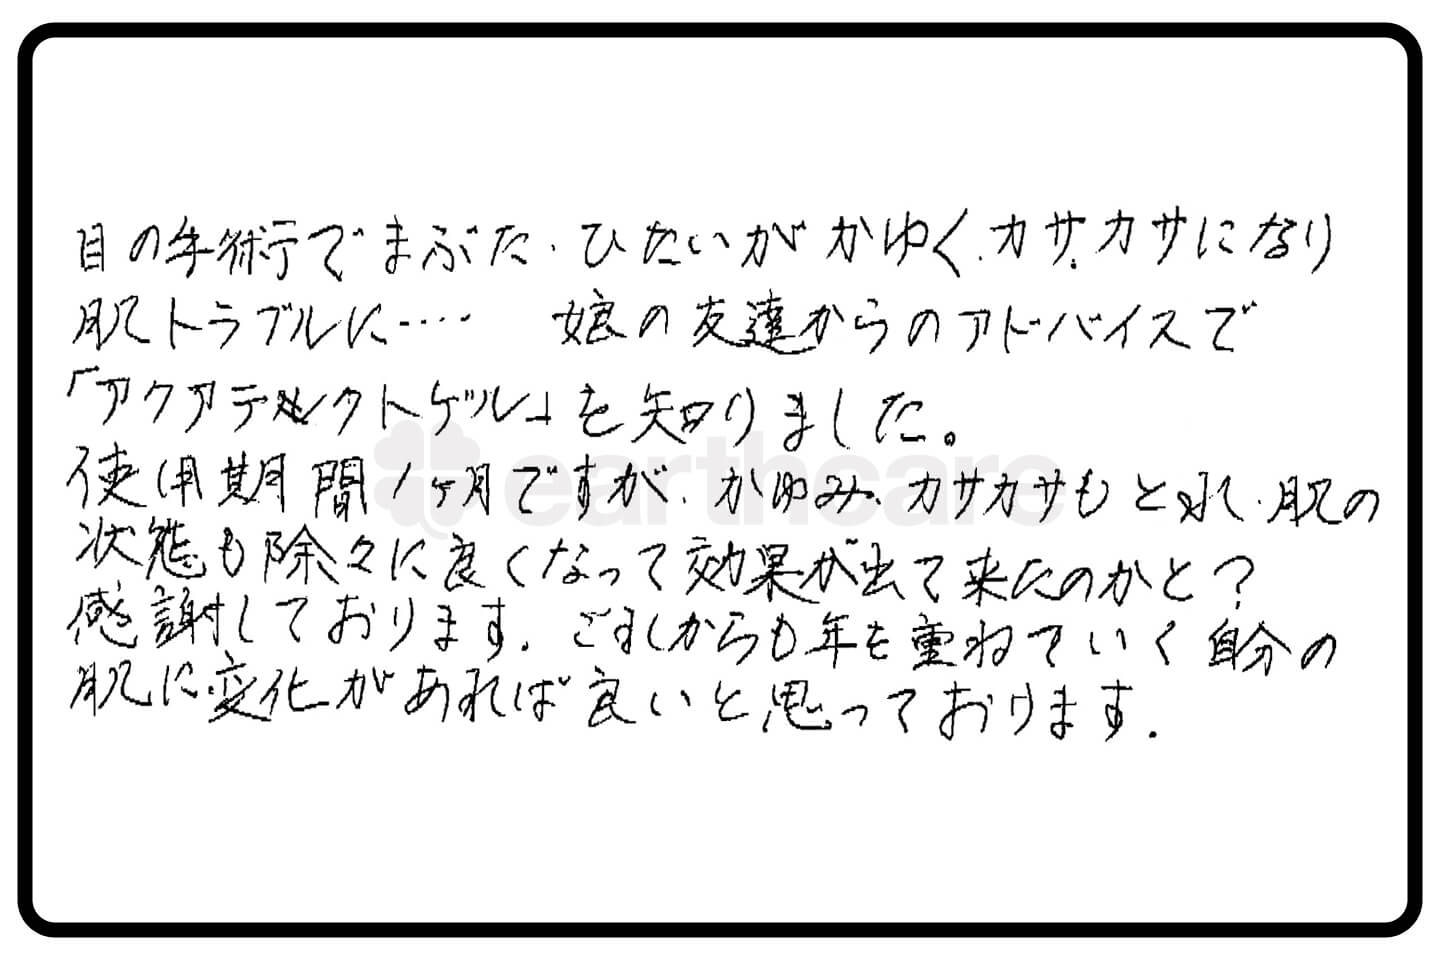 目の手術でまぶた、ひたいがかゆく、カサカサになり
肌トラブルに…… 娘の友達からのアドバイスで
「アクアテクトゲル」を知りました。
使用期間1ヶ月ですが、かゆみ、カサカサもとれ、肌の
earthcare
状態も除々に良くなって効果が出て来たのかと?
感謝しております。これからも年を重ねていく自分の
肌に変化があれば良いと思っております.